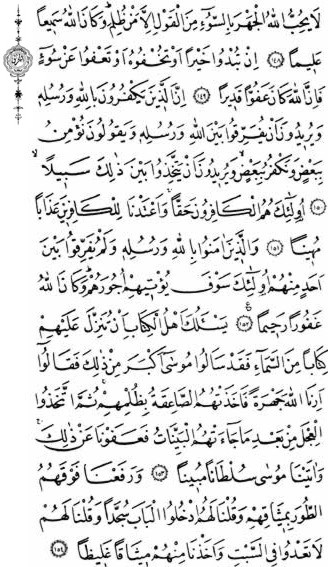 لَا يُحِبُّ اللّٰهُ الْجَهْرَ بِالسُّوٓءِ مِنَ الْقَوْلِ اِلَّا مَنْ ظُلِمَۜ وَكَانَ اللّٰهُ سَمٖيعًا
عَلٖيمًا ﴿١٤٨﴾ اِنْ تُبْدُوا خَيْرًا اَوْ تُخْفُوهُ اَوْ تَعْفُوا عَنْ سُوٓءٍ
فَاِنَّ اللّٰهَ كَانَ عَفُوًّا قَدٖيرًا ﴿١٤٩﴾ اِنَّ الَّذٖينَ يَكْفُرُونَ بِاللّٰهِ وَرُسُلِهٖ
وَيُرٖيدُونَ اَنْ يُفَرِّقُوا بَيْنَ اللّٰهِ وَرُسُلِهٖ وَيَقُولُونَ نُؤْمِنُ
بِبَعْضٍ وَنَكْفُرُ بِبَعْضٍ وَيُرٖيدُونَ اَنْ يَتَّخِذُوا بَيْنَ ذٰلِكَ سَبٖيلًاۙ
﴿١٥٠﴾ اُو۬لٰٓئِكَ هُمُ الْكَافِرُونَ حَقًّاۚ وَاَعْتَدْنَا لِلْكَافِرٖينَ عَذَابًا
مُهٖينًا ﴿١٥١﴾ وَالَّذٖينَ اٰمَنُوا بِاللّٰهِ وَرُسُلِهٖ وَلَمْ يُفَرِّقُوا بَيْنَ
اَحَدٍ مِنْهُمْ اُو۬لٰٓئِكَ سَوْفَ يُؤْتٖيهِمْ اُجُورَهُمْۜ وَكَانَ اللّٰهُ
غَفُورًا رَحٖيمًا ﴿١٥٢﴾ يَسْـَٔلُكَ اَهْلُ الْكِتَابِ اَنْ تُنَزِّلَ عَلَيْهِمْ
كِتَابًا مِنَ السَّمَٓاءِ فَقَدْ سَاَلُوا مُوسٰٓى اَكْبَرَ مِنْ ذٰلِكَ فَقَالُٓوا
اَرِنَا اللّٰهَ جَهْرَةً فَاَخَذَتْهُمُ الصَّاعِقَةُ بِظُلْمِهِمْۚ ثُمَّ اتَّخَذُوا
الْعِجْلَ مِنْ بَعْدِ مَا جَٓاءَتْهُمُ الْبَيِّنَاتُ فَعَفَوْنَا عَنْ ذٰلِكَۚ
وَاٰتَيْنَا مُوسٰى سُلْطَانًا مُبٖينًا ﴿١٥٣﴾ وَرَفَعْنَا فَوْقَهُمُ
الطُّورَ بِمٖيثَاقِهِمْ وَقُلْنَا لَهُمُ ادْخُلُوا الْبَابَ سُجَّدًا وَقُلْنَا لَهُمْ
لَا تَعْدُوا فِي السَّبْتِ وَاَخَذْنَا مِنْهُمْ مٖيثَاقًا غَلٖيظًا ﴿١٥٤﴾